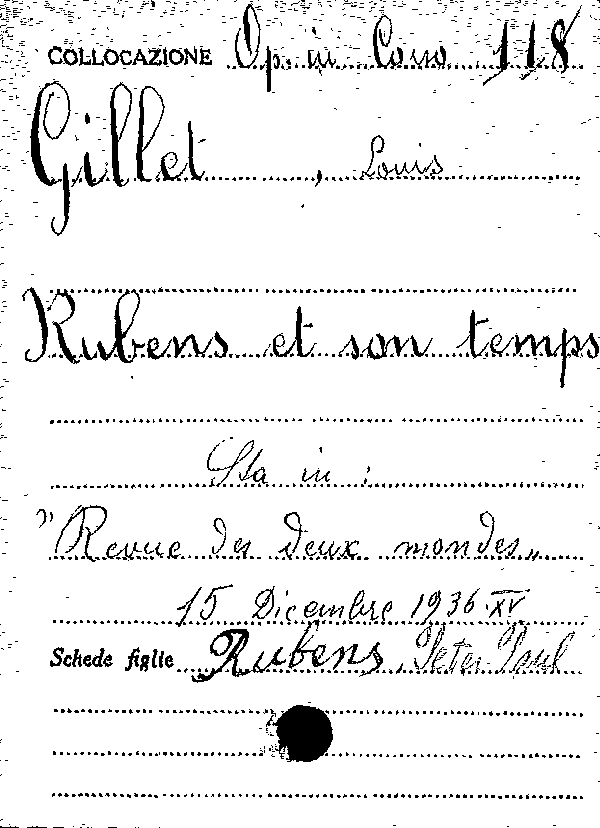 COLLOCAZIONE Op. in Cons 118
Gillet, Louis
Rubens et son temps
Sta in :
"Revue des deux mondes„
15 Dicembre 1936·XV
Schede figlie Rubens, Peter Paul